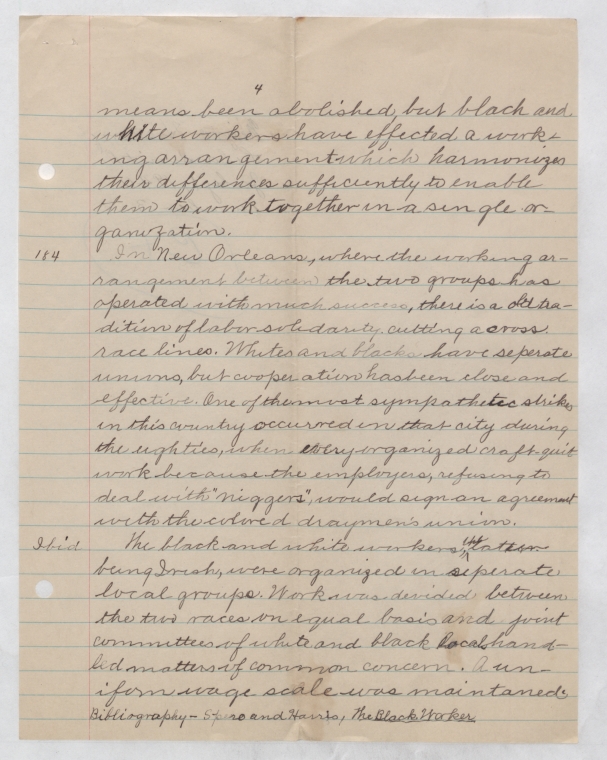 4
means been abolished, but black and
white workers have effected a work-
ing arrangement which harmonizes
their differences sufficiently to enable
them to work together in a single or-
ganization.
184 In New Orleans, where the working ar-
rangement between the two groups has
operated with much success, there is a old tra-
dition of labor solidarity cutting across
race lines. Whites and blacks have seperate
unions, but cooperation has been close and
effective. One of the most sympathetic strikes
in this country occurred in that city during
the eighties, when every organized craft quit
work because the employers, refusing to
deal with "niggers", would sign an agreement
with the colored draymen's union.
Ibid The black and white workers, the latter
being Irish, were organized in seperate
local groups. Work was devided between
the two races on equal basis and joint
committees of white and black locals hand-
led matters of common concern. A un-
iform wage scale was maintaned.
Bibliography - Spero and Harris, The Black Worker